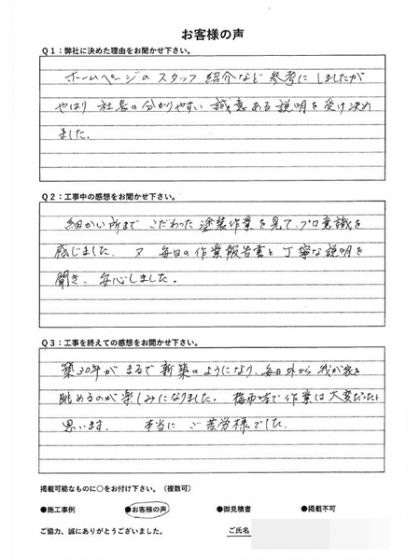 お客様の声
Q1:弊社に決めた理由をお聞かせ下さい。
ホームページのスタッフ紹介など参考にしましたが
やはり社長の分かりやすい誠意ある説明を受け決め
ました。
Q2:工事中の感想をお聞かせ下さい。
細かい所までこだわった塗装作業を見て、プロ意識を
感じました。又毎日の作業報告書と丁寧な説明を
聞き、安心しました。
Q3:工事を終えての感想をお聞かせ下さい。
築30年がまるで新築のようになり、毎日外から我が家を
眺めるのが楽しみになりました。梅雨時で作業は大変だったと
思います。 本当にご苦労様でした。
掲載可能なものに○をお付け下さい。(複数可)
●施工事例 ●お客様の声 ●御見積書 ●掲載不可
ご協力、誠にありがとうございました。 ご氏名